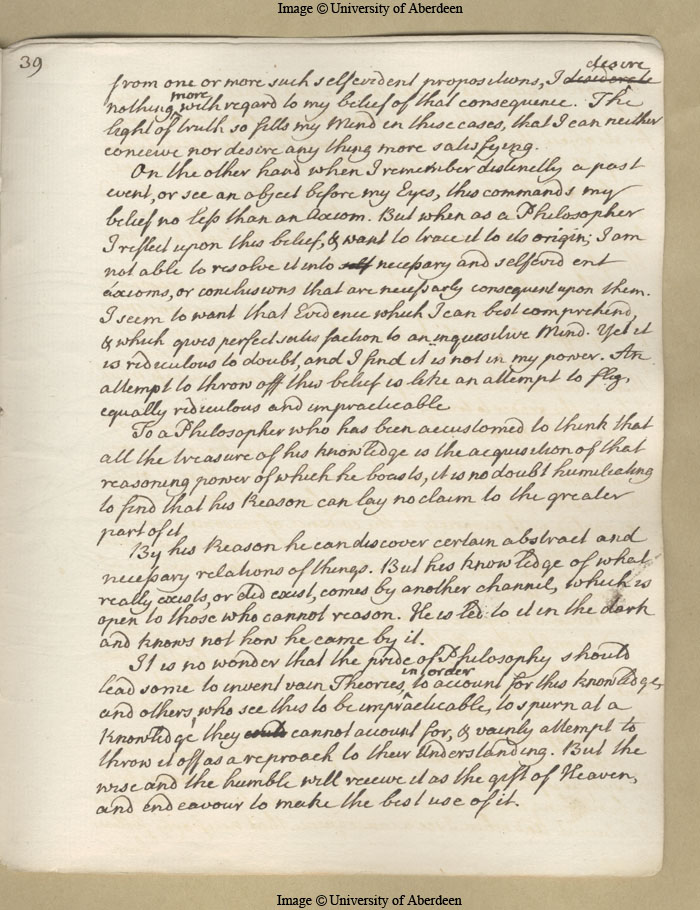 Image © University of Aberdeen
39
desire
from one or more such selfevident propositions, I desiderate
more
nothing, with regard to my belief of that consequence. The
light of truth so fills my Mind in these cases, that I can neither
conceive nor desire any thing more satisfying.
On the other hand when I remember distinctly a past
event, or see an object before my Eyes, this commands my
belief no less than an Axiom. But when as a Philosopher
I reflect upon this belief, & want to trace it to its origin; I am
not able to resolve it into self necessary and selfevident
axioms, or conclusions that are necessarly consequent upon them.
I seem to want that Evidence which I can best comprehend,
& which gives perfect satisfaction to an inquisitive Mind. Yet it
is ridiculous to doubt, and I find it is not in my power. An
attempt to throw off this belief is like an attempt to fly,
equally ridiculous and impracticable
To a Philosopher who has been accustomed to think that
all the treasure of his knowledge is the acquisition of that
reasoning power of which he boasts, it is no doubt humiliating
to find that his Reason can lay no claim to the greater
part of it
By his Reason he can discover certain abstract and
necessary relations of things. But his knowledge of what
really exists, or did exist, comes by another channel, which is
open to those who cannot reason. He is led to it in the dark
and knows not how he came by it.
It is no wonder that the pride of Philosophy should
in order
lead some to invent vain Theories, to account for this knowledge,
and others, who see this to be impracticable, to spurn at a
knowledge they could cannot account for, & vainly attempt to
throw it off as a reproach to their Understanding. But the
wise and the humble will receive it as the gift of Heaven,
and endeavour to make the best use of it.
Image © University of Aberdeen